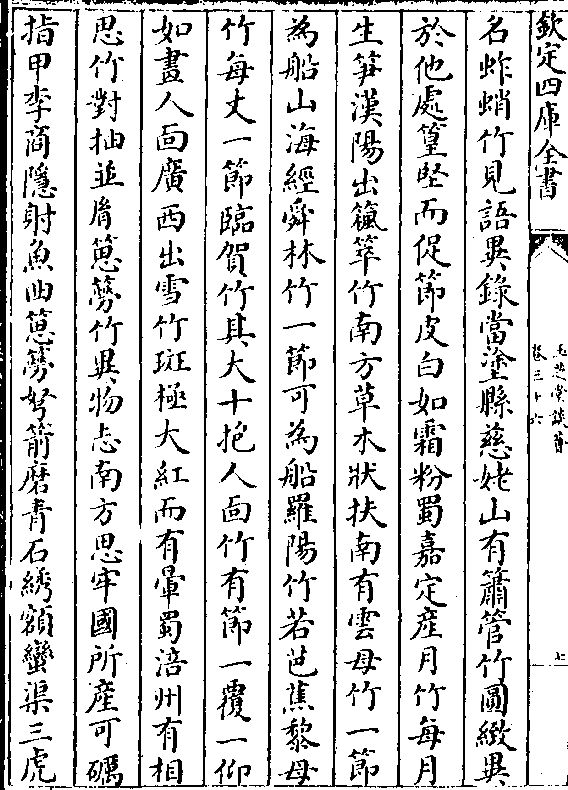 欽定四庫全書
玉芝堂談薈
卷三十六
七
名蚱蛸竹見語異錄當塗縣慈姥山有簫管竹圖緻異
於他處篁堅而促節皮白如霜粉蜀嘉定產月竹每月
生笋漢陽出䈴箤竹南方草木狀扶南有雲母竹一節
為船山海經舜林竹一節可為船羅陽竹若芭蕉黎母
竹每丈一節臨賀竹具大十抱人面竹有節一覆一仰
如畫人面廣西出雪竹斑極大紅而有暈蜀涪州有相
思竹對抽並𦙍箽簩竹異物志南方思牢國所產可礪
指甲李商隱射魚曲箽簩弩箭磨青石綉額蠻渠三虎